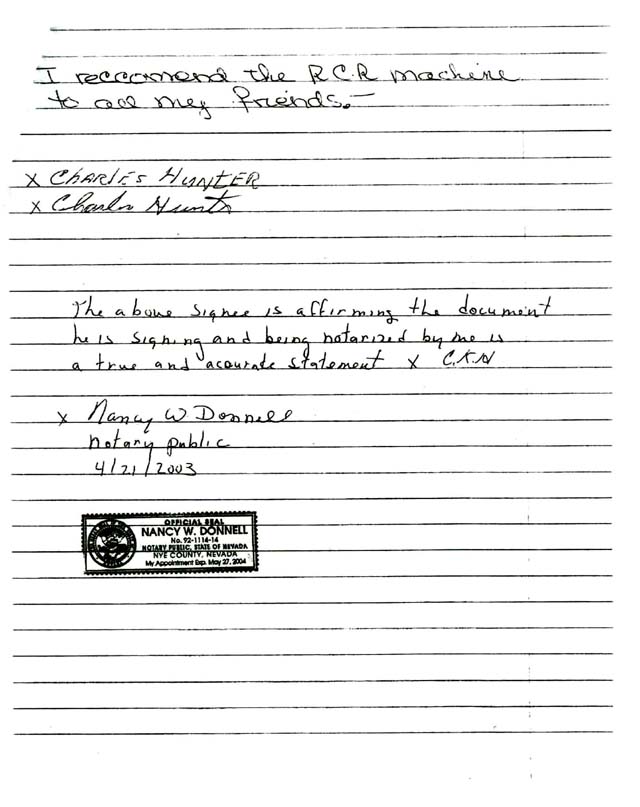 I reccomend the R.C.R machine
to all my friends.-
x CHARlES HUNTER
x Charles Hunter
The above signee is affirming the document
he is signing and being notarized by me is
a true and acourate statement x C.K.H
x Nancy W Donnell
notary public
4/21/2003
OFFICIAL SEAL
NANCY W. DONNELL
No. 92-1114-14
NOTARY PUBLIC, STATE OF NEVADA
NYE COUNTY, NEVADA
My Appointment Exp. May 27, 2004